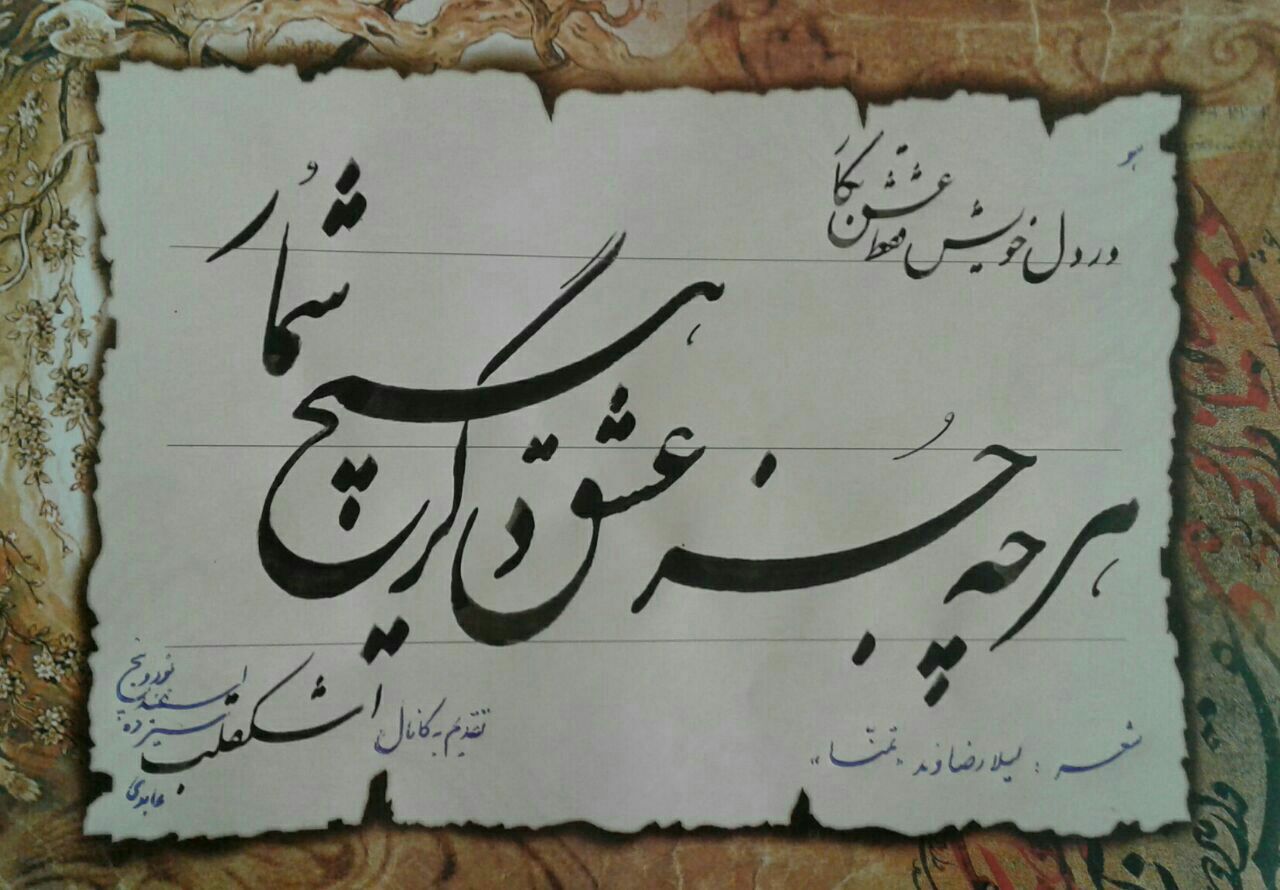 هو
در دل خویش فقط عشق بکار
هر چه جز عشق دگر هیچ شمار
شعر : لیلا رضاوند "تمنّا"
تقدیم به کانال اشکقلب
اسفند نود و پنج
عابدی